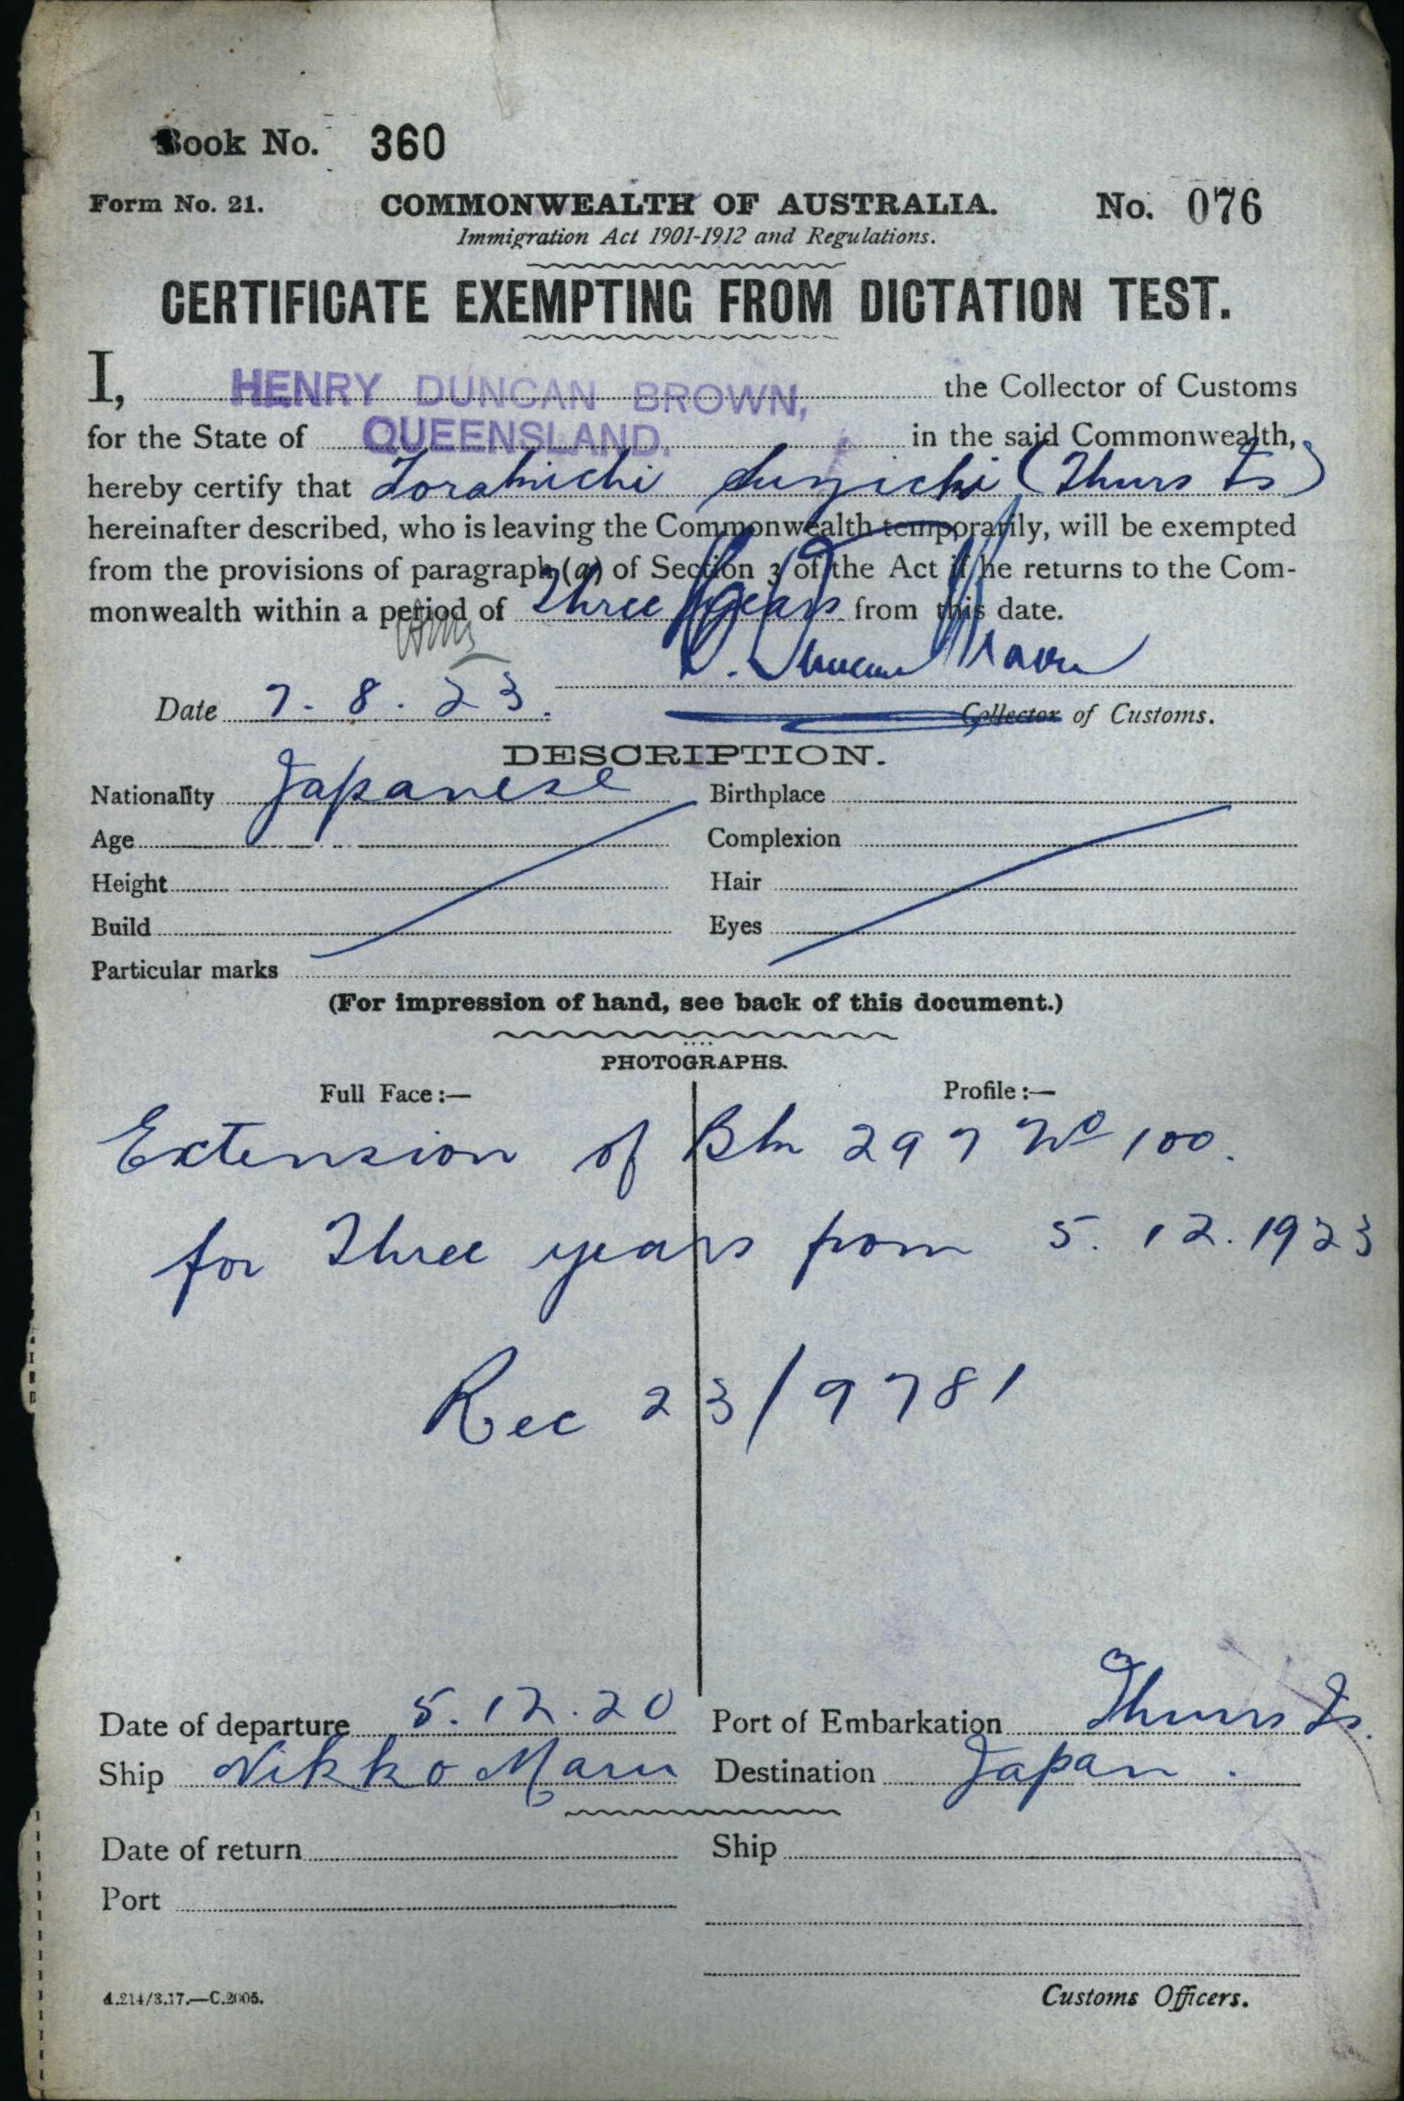 Book No. 360
Form No. 21. COMMONWEALTH OF AUSTRALIA. No. 076
Immigration Act 1901-1912 and Regulations.
CERTIFICATE EXEMPTING FROM DICTATION TEST.
I, HENRY DUNCAN BROWN, the Collector of Customs
for the State of QUEENSLAND. in the said Commonwealth,
hereby certify that (Thurs Is)
hereinafter described, who is leaving the Commonwealth temporarily, will be exempted
from the provisions of paragraph (a) of Section 3 of the Act if he returns to the Com-
monwealth within a period of Three years from this date.
H. Duncan Brown
Date 7.8.23. Collector of Customs.
DESCRIPTION.
Nationality Japanese Birthplace
Age Complexion
Height Hair
Build Eyes
Particular marks
(For impression of hand, see back of this document.)
PHOTOGRAPHS.
Full Face:— Profile:—
Extension of Bk 297 No 100.
for Three years from 5.12.1923
Rec 23/9781
Date of departure 5.12.20 Port of Embarkation Thurs Is.
Ship Nikko Maru Destination Japan.
Date of return Ship
Port
A.214/3.17.—C.2005. Customs Officers.